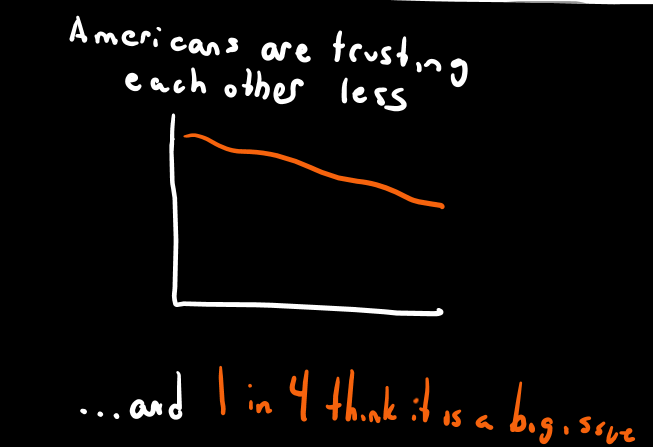 Americans are trusting
each other less
...and 1 in 4 think it is a big issue